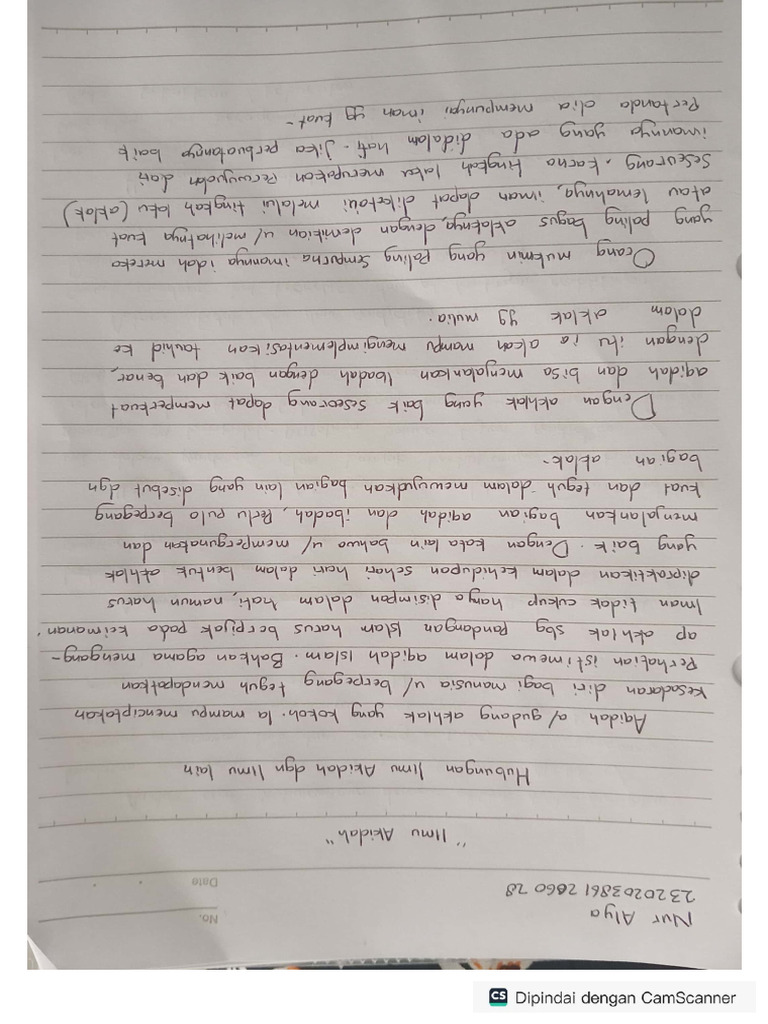 Nur Alya
23202038612060 28
No.
Date
"Ilmu Akidah"
Hubungan Ilmu Akidah dgn Ilmu lain
Aqidah a/ gudang akhlak yang kokoh. Ia mampu menciptakan
kesadaran diri bagi manusia u/ berpegang teguh mendapatkan
Perhatian istimewa dalam aqidah Islam. Bahkan agama mengang-
ap akhlak sbg pandangan Islam harus berpijak pada keimanan.
Iman tidak cukup hanya disimpan dalam hati, namun harus
dipraktikan dalam kehidupan sehari hari dalam bentuk akhlak
yang baik. Dengan kata lain bahwa u/ mempergunakan dan
menjalankan bagian aqidah dan ibadah, Perlu pula berpegang
kuat dan teguh dalam mewujudkan bagian lain yang disebut dgn
bagian aklak.
Dengan akhlak yang baik seseorang dapat memperkuat
aqidah dan bisa menjalankan Ibadah dengan baik dan benar,
dengan itu ia akan mampu mengimplementasikan tauhid ke
dalam aklak yg mulia.
Orang mukmin yang paling sempurna imannya idah mereka
yang paling bagus aklaknya, dengan demikian u/ melihatnya kuat
atau lemahnya, iman dapat diketahi melalui tingkah laku (aklak)
Seseurang. Karna tingkah laku merupakan Perwujudan dari
imannya yang ada didalam hati. Jika perbuatanya baik
Pertanda dia mempunyai iman yg kuat-
CS Dipindai dengan CamScanner